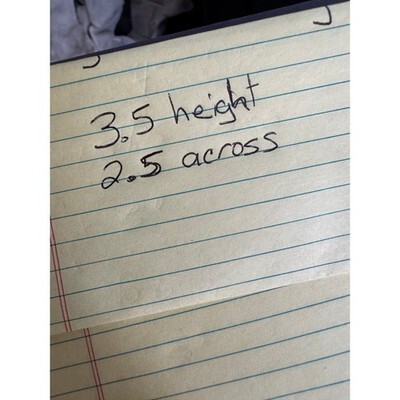 3.5 height
2.5 across